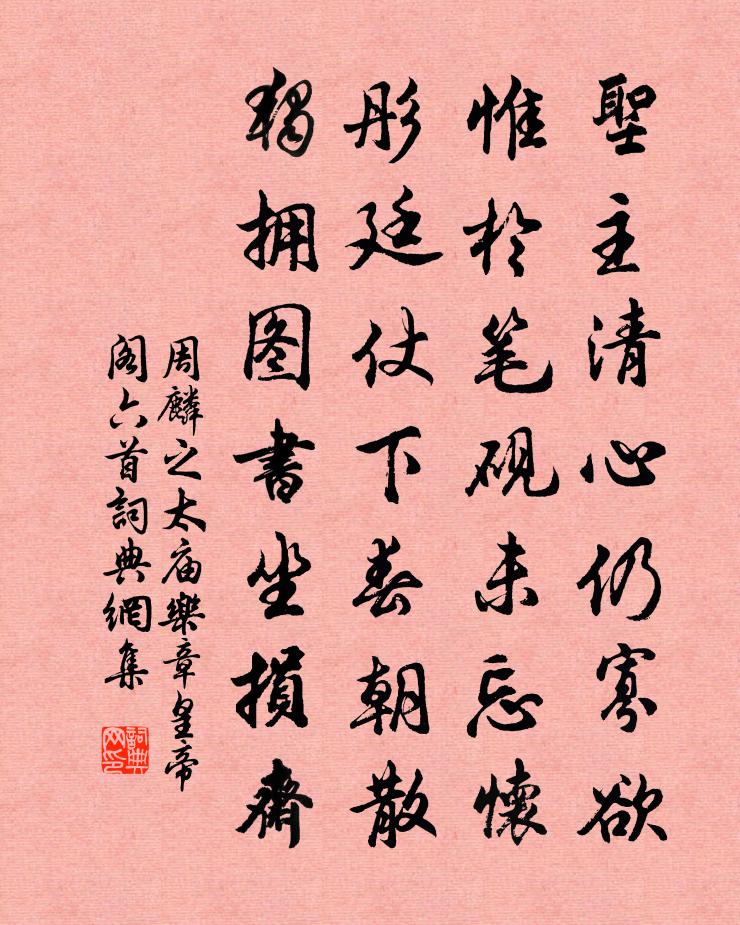 聖主清心仍寡欲
惟於笔砚未忘懷
彤廷仗下春朝散
獨拥图書坐損齋
周麟之太庙樂章皇帝
阁六首詞典網集
詞典
网印